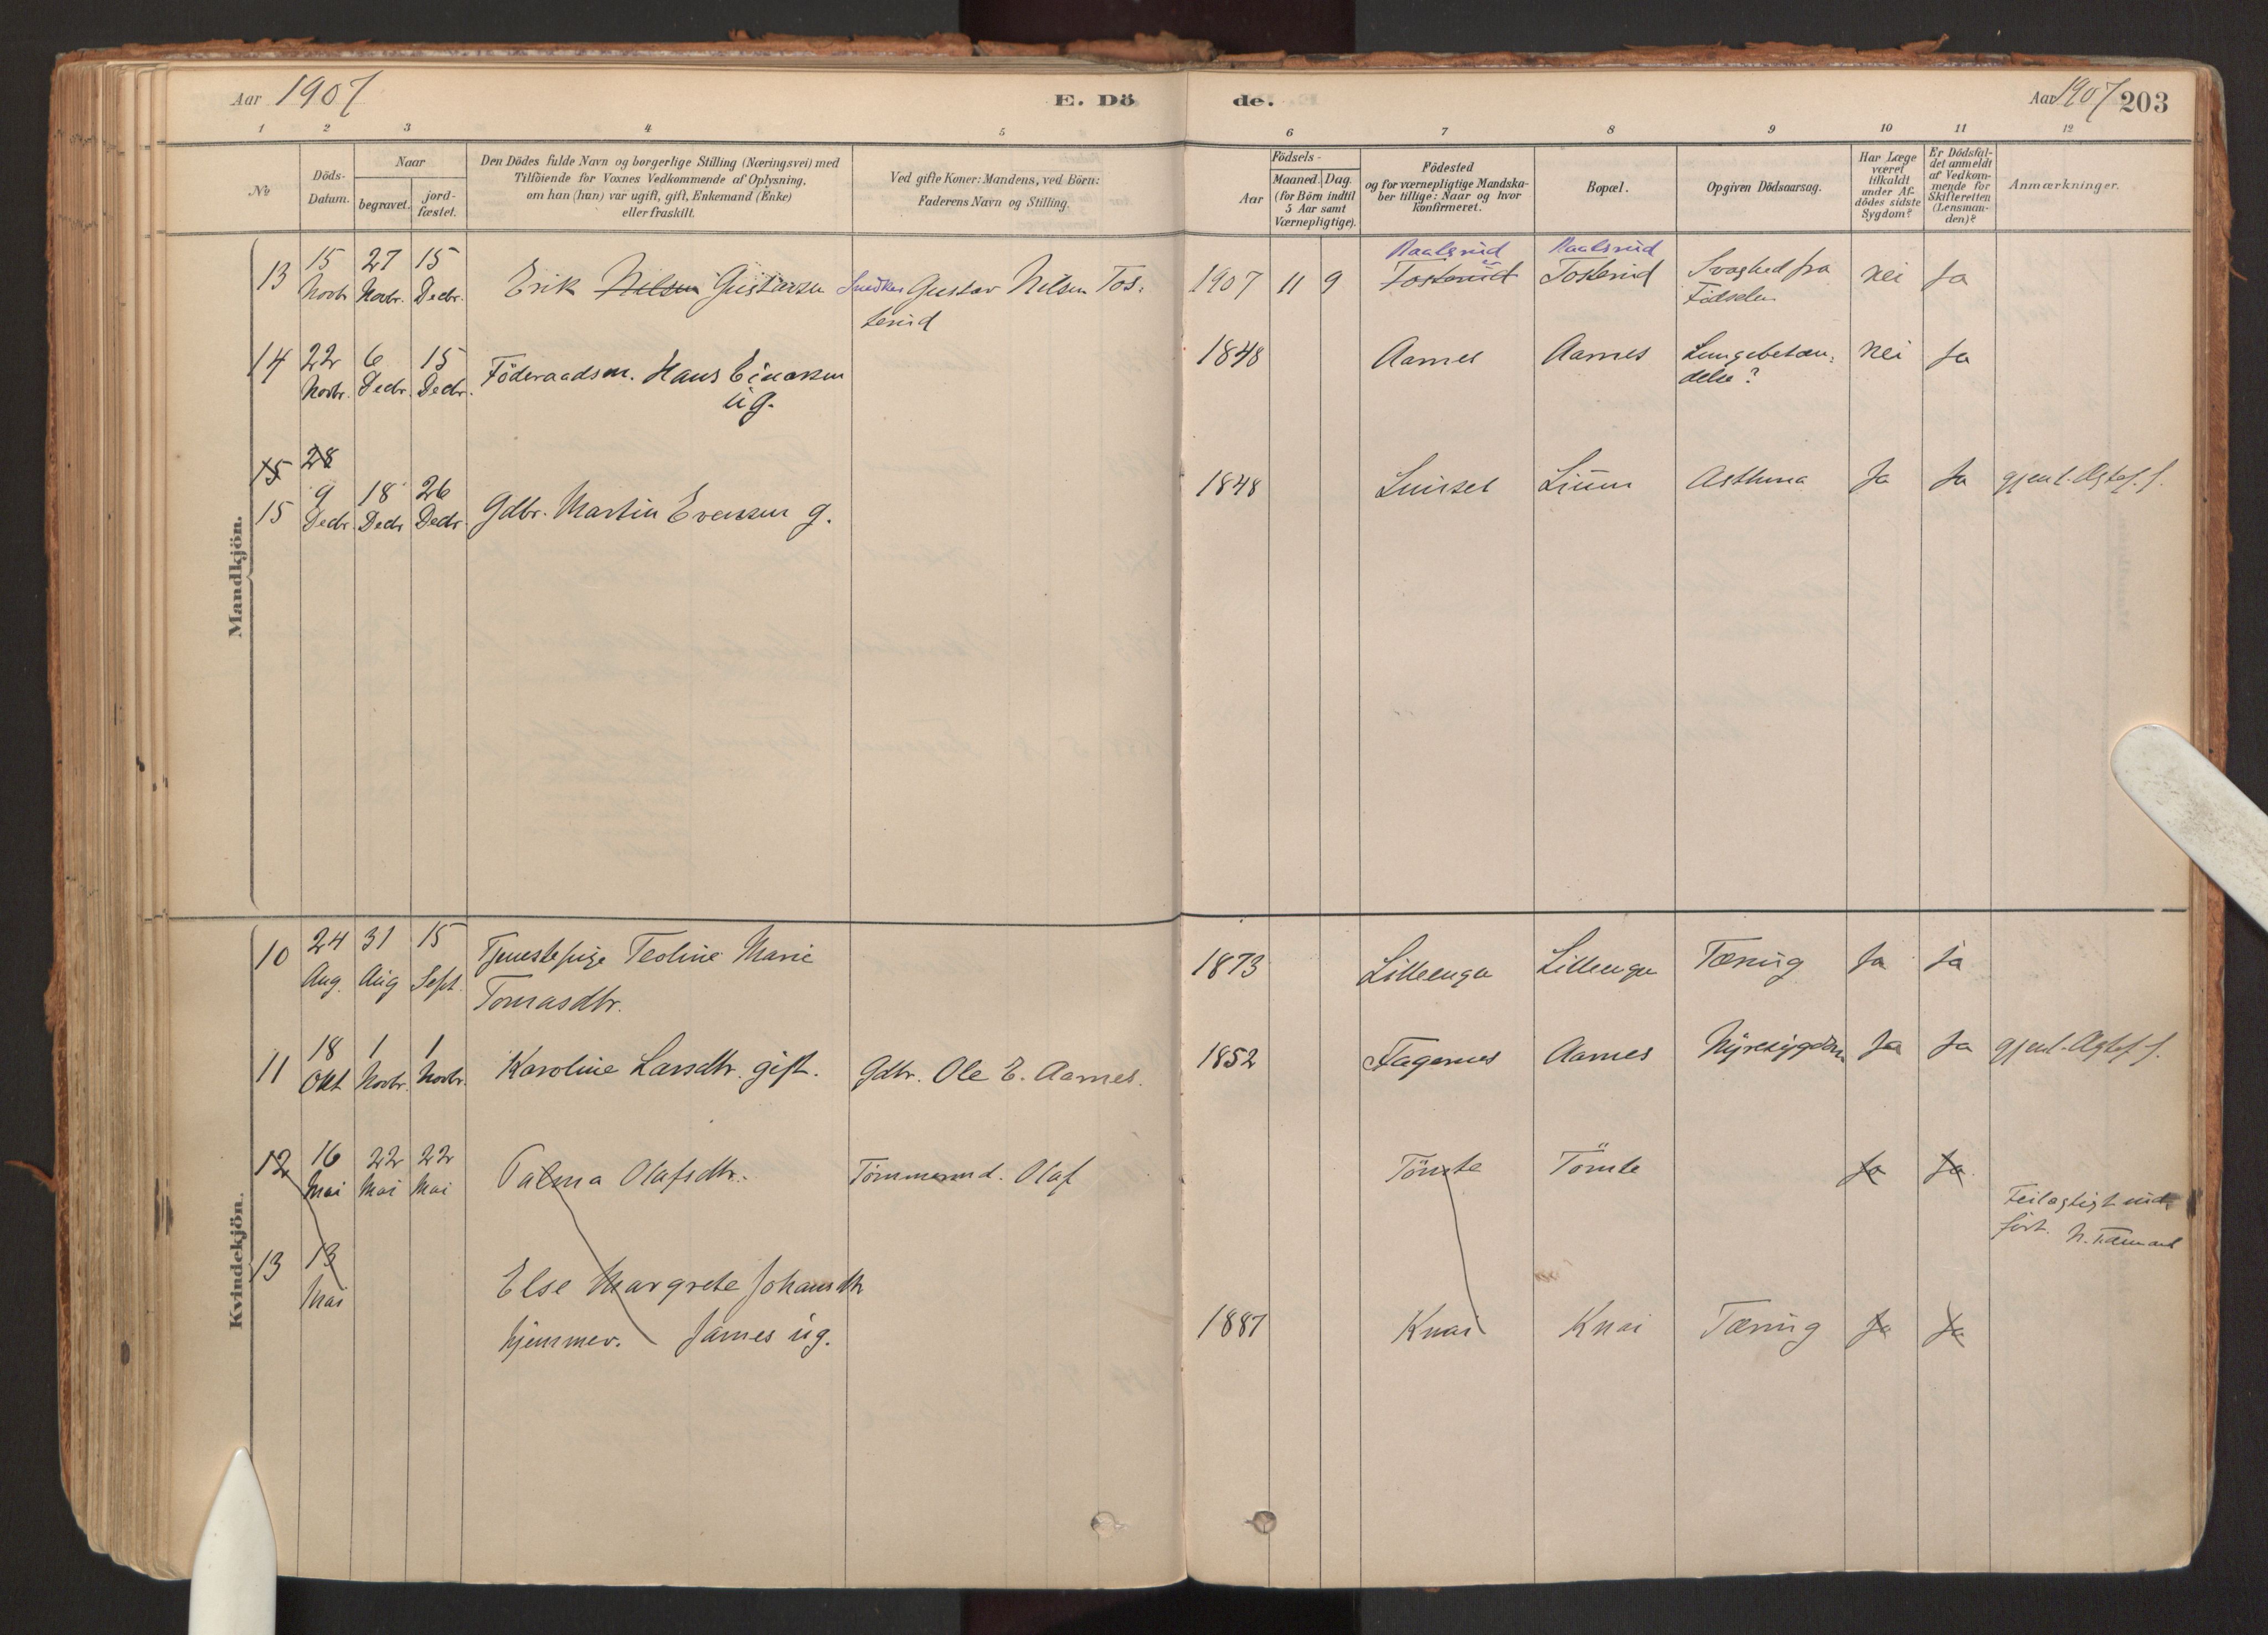 Aar 1907
E. Dö
de.
Aar 1907 203
1 2 3 4 5 6 7 8 9 10 11 12
No
Döds-
Datum.
Naar
begravet.
jord-
fæstet.
Den Dödes fulde Navn og borgerlige Stilling (Næringsvei) med
Tilföiende for Voxnes Vedkommende af Oplysning,
om han (hun) var ugift, gift, Enkemand (Enke)
eller fraskilt.
Ved gifte Koner: Mandens, ved Börn:
Faderens Navn og Stilling.
Födsels-
Aar
Maaned. Dag.
(for Börn indtil
5 Aar samt
Værnepligtige).
Födested
og for værnepligtige Mandska-
ber tillige: Naar og hvor
konfirmeret.
Bopæl.
Opgiven Dödsaarsag.
Har Læge
været
tilkaldt
under Af-
dödes sidste
Sygdom?
Er Dödsfal-
det anmeldt
af Vedkom-
mende for
Skifteretten
(Lensman-
den)?
Anmærkninger.
Mandkjön.
13
15 27 15
Novbr. Novbr. Decbr.
Erik Nilsen Gustavsen
Snedker Gustav Nilsen Tos-
terud
1907 11 9
Raalsrud Raalsrud
Tosterud Tosterud
Svaghed fra
Födselen
Nei Ja
14
22 6 15
Novbr. Decbr. Decbr.
Föderaadsm. Hans Einarsen
ug.
1848 Aarnes Aarnes
Lungebetæn-
delse?
Nei Ja
15 28
15
9 18 26
Decbr. Decbr. Decbr.
Gdbr. Martin Evensen g.
1848
Asthma Ja Ja
Kvindekjön.
10
24 31 15
Aug. Aug Sept.
Tjenestepige Teoline Marie
Tomasdtr.
1873 Lilleenga Lilleenga Tæring Ja Ja
11
18 1 1
Okt Novbr. Novbr.
Karoline Larsdtr. gift.
Gdbr. Ole E. Aarnes.
1852 Fagernes Aarnes Nyresygdom Ja Ja
12
16 22 22
Mai Mai Mai
Palma Olafsdtr.
Tömmermd. Olaf
Tömte Tömte Ja Ja
Feilagtigt ind-
fört.
13
13
Mai
Else Margrete Johansdtr
hjemmev. Jarnes ug.
1887 Knai Knai Tæring Ja Ja